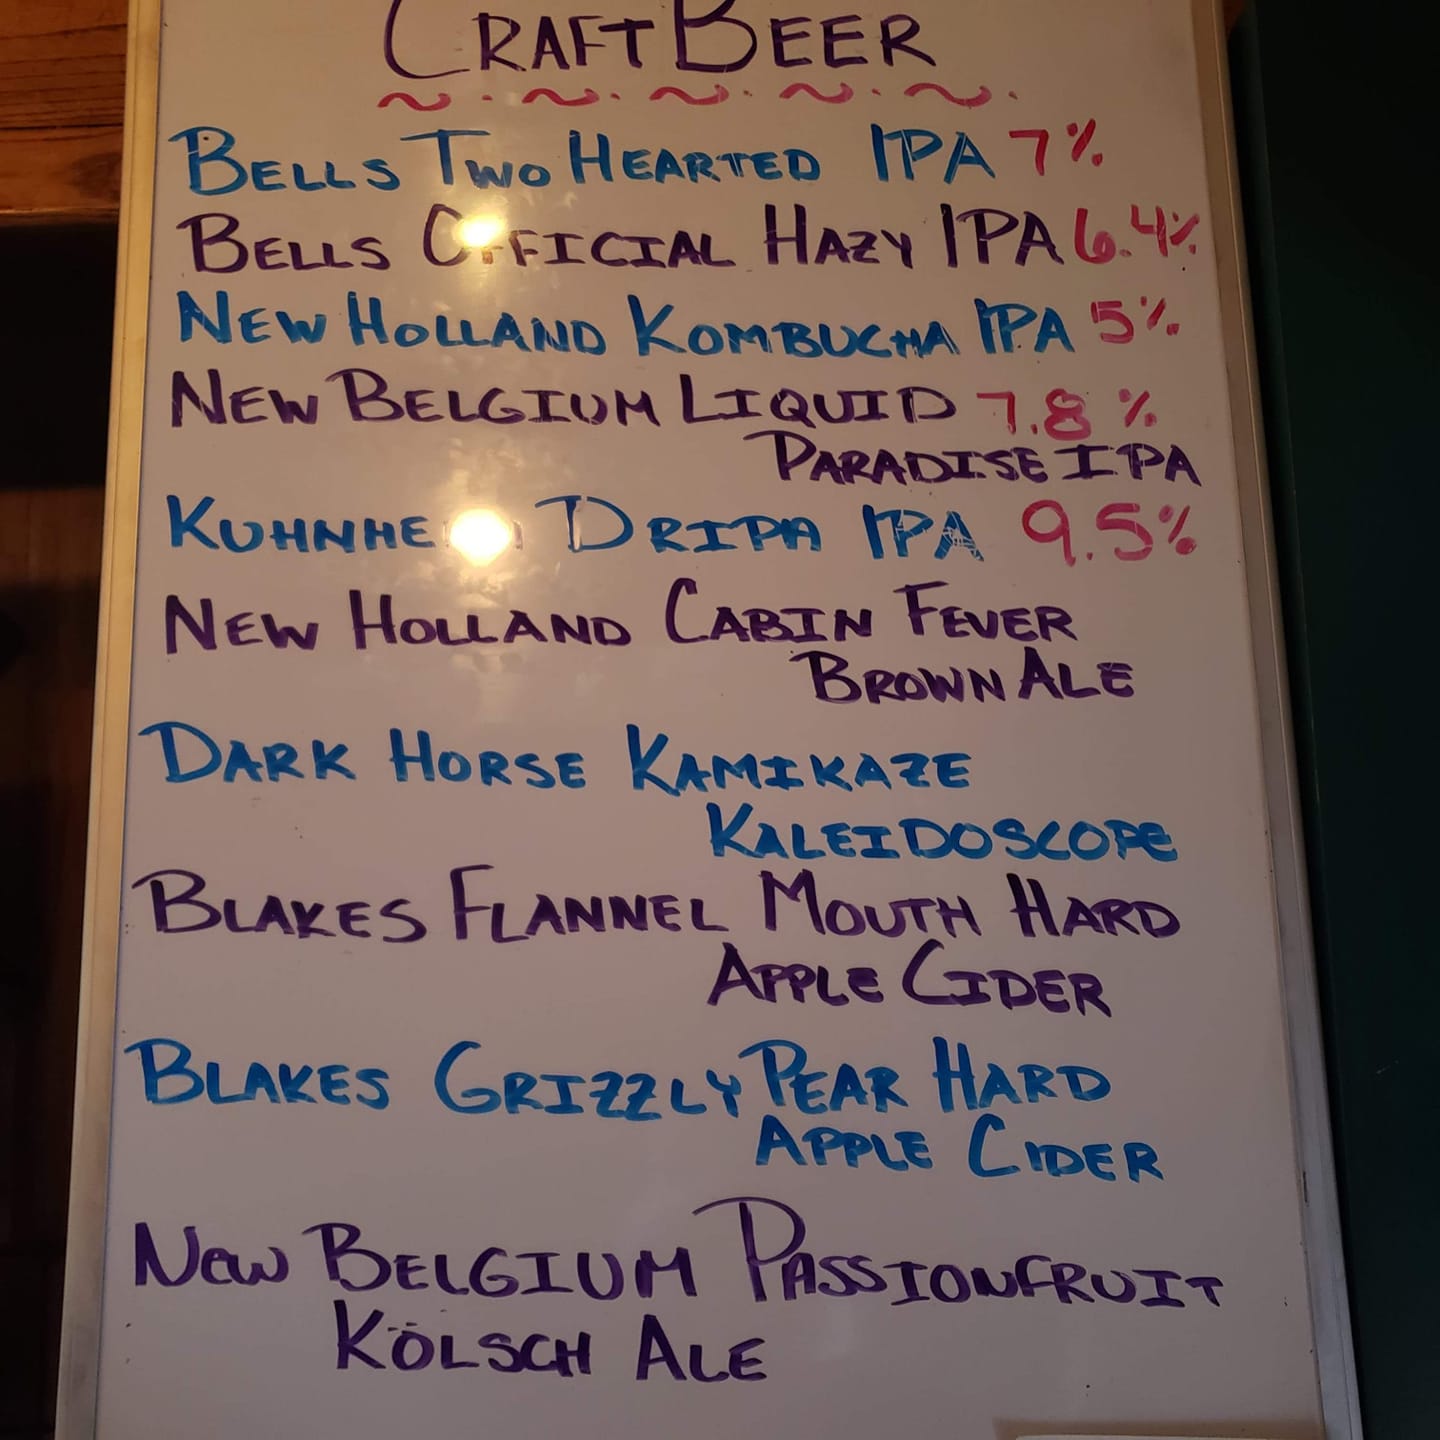 CRAFT BEER
BELLS TWO HEARTED IPA 7%
BELLS OFFICIAL HAZY IPA 6.4%
NEW HOLLAND KOMBUCHA IPA 5%
NEW BELGIUM LIQUID 7.8%
PARADISE IPA
DRIPA IPA 9.5%
NEW HOLLAND CABIN FEVER
BROWN ALE
DARK HORSE KAMIKAZE
KALEIDOSCOPE
BLAKES FLANNEL MOUTH HARD
APPLE CIDER
BLAKES GRIZZLY PEAR HARD
APPLE CIDER
NEW BELGIUM PASSIONFRUIT
KÖLSCH ALE